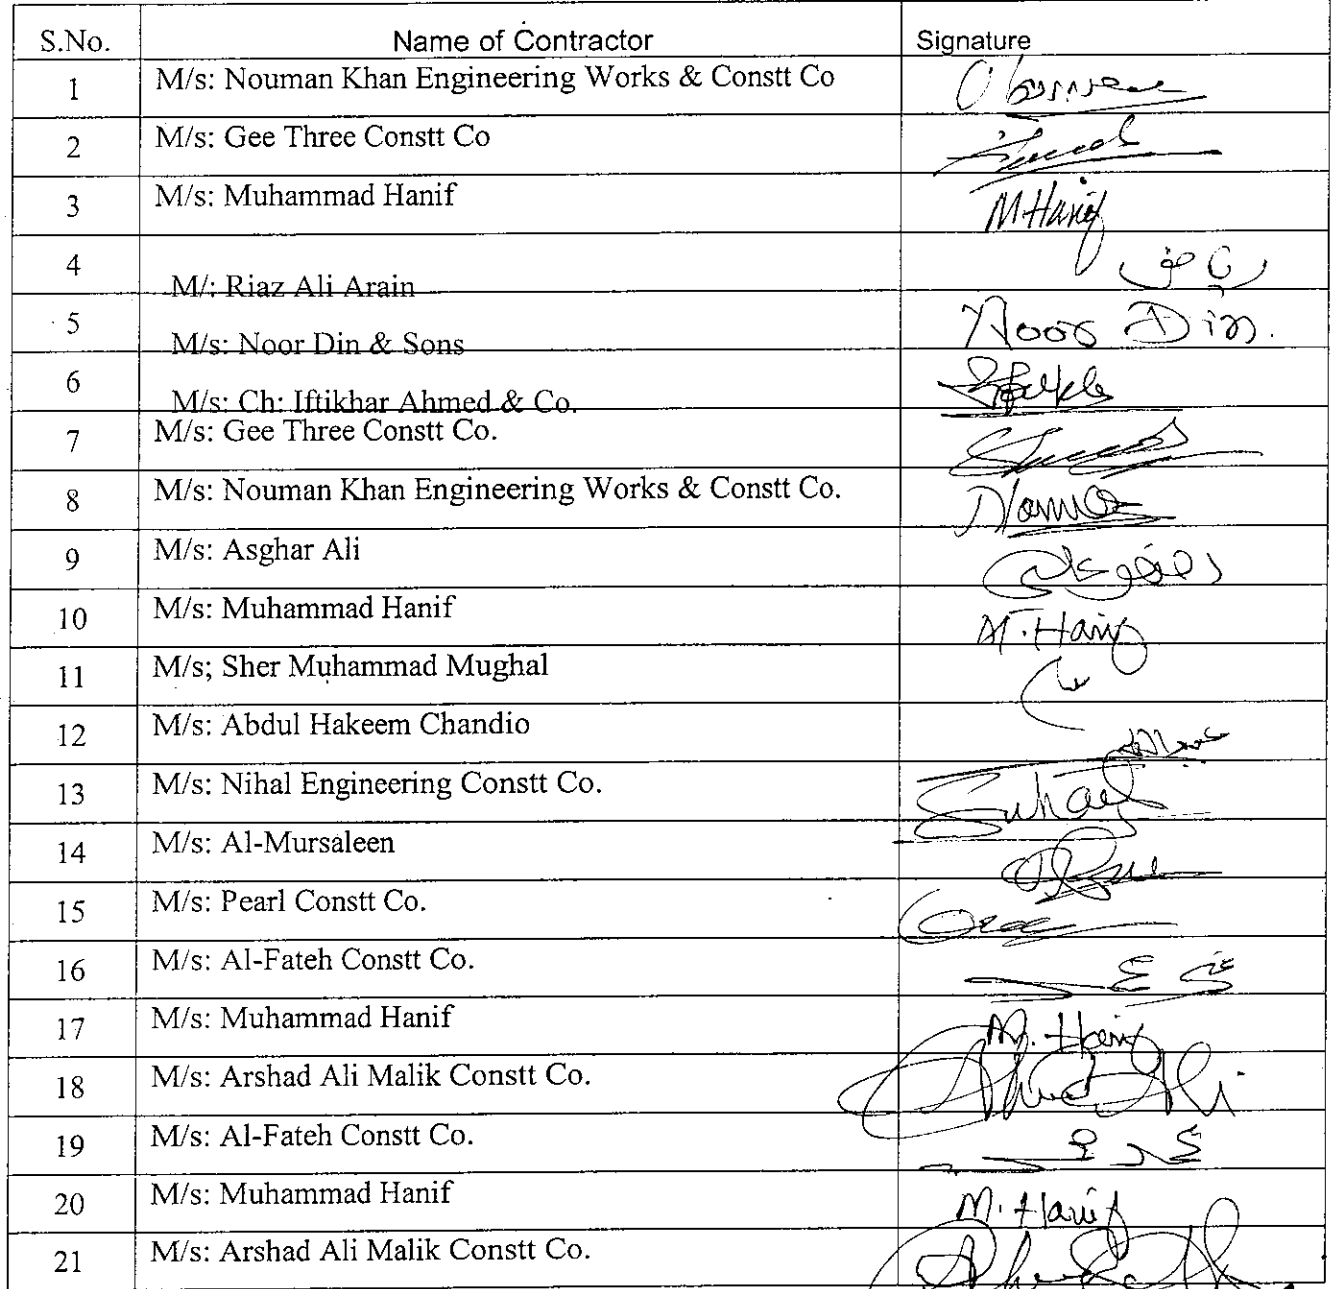 S.No. Name of Contractor Signature
1 M/s: Nouman Khan Engineering Works & Constt Co
2 M/s: Gee Three Constt Co
3 M/s: Muhammad Hanif M Hanif
4 M/: Riaz Ali Arain
5 M/s: Noor Din & Sons Noor Din.
6 M/s: Ch: Iftikhar Ahmed & Co.
7 M/s: Gee Three Constt Co.
8 M/s: Nouman Khan Engineering Works & Constt Co.
9 M/s: Asghar Ali
10 M/s: Muhammad Hanif M. Hanif
11 M/s; Sher Muhammad Mughal
12 M/s: Abdul Hakeem Chandio
13 M/s: Nihal Engineering Constt Co. Suhail
14 M/s: Al-Mursaleen
15 M/s: Pearl Constt Co.
16 M/s: Al-Fateh Constt Co.
17 M/s: Muhammad Hanif M. Hanif
18 M/s: Arshad Ali Malik Constt Co.
19 M/s: Al-Fateh Constt Co.
20 M/s: Muhammad Hanif M. Hanif
21 M/s: Arshad Ali Malik Constt Co.